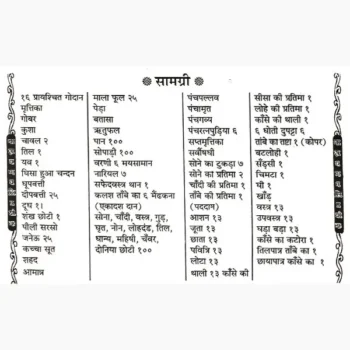 सामग्री
१६ प्रायश्चित गोदान
मृत्तिका
गोबर
कुशा
चावल २
तिल १
यव १
घिसा हुआ चन्दन
धूपबत्ती
दीपबत्ती २५
दूध १।
शंख छोटी १
पीली सरसो
जनेऊ २५
कच्चा सूत
शहद
आमान्न
माला फूल २५
पेड़ा
बतासा
ऋतुफल
पान १००
सोपाड़ी १००
वरणी ६ मयसामान
नारियल ७
सफेदवस्त्र थान १
कलश ताँबे का ६ मैंढकना
(एकादश दान)
सोना, चाँदी, वस्त्र, गुड़,
घृत, नोन, लोहदंड, तिल,
धान्य, महिषी, चँवर,
दोनिया छोटी १००
पंचपल्लव
पंचामृत
पंचगव्य
पंचरत्नपुड़िया ६
सप्तमृत्तिका
सर्वौषधी
सोने का टुकड़ा ७
सोने का प्रतिमा २
चाँदी की प्रतिमा १
ताँबे की प्रतिमा १
(पददाम)
आशन १३
जूता १३
छाता १३
पवित्रि १३
लोटा १३
थाली १३ काँसे की
सीसा की प्रतिमा १
लोहे की प्रतिमा १
काँसे की थाली १
६ धोती दुपट्टा ६
ताँबे का तष्टा १ (कोपर)
बटलोही १
सँड़सी १
चिमटा १
घी १
खाँड़
वस्त्र १३
उपवस्त्र १३
घड़ा बड़ा १३
काँसे का कटोरा १
तिलपात्र ताँबे का १
छायापात्र काँसे का १